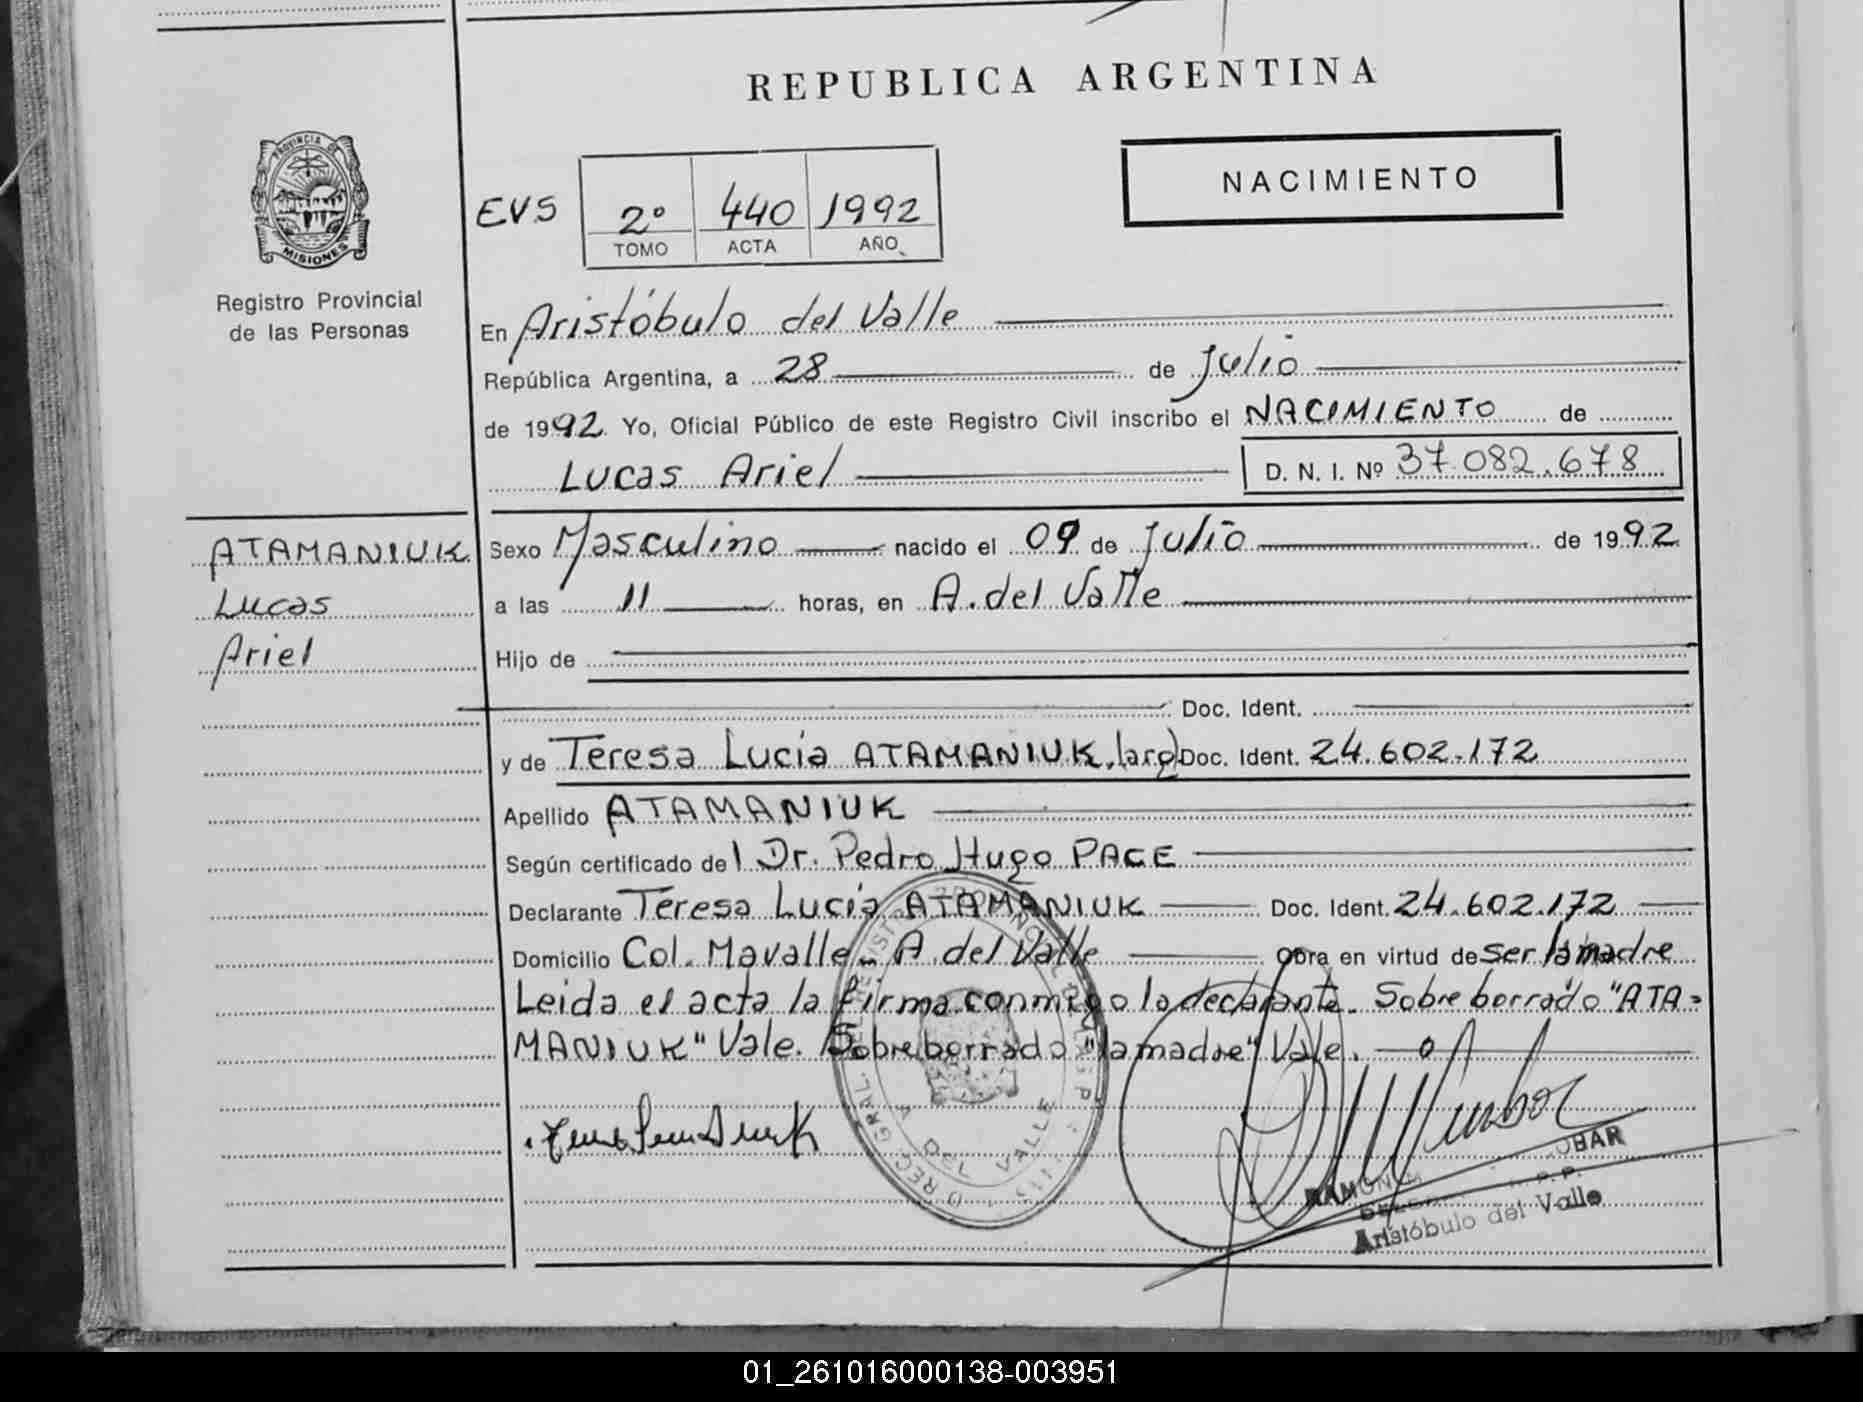 REPUBLICA ARGENTINA
PROVINCIA DE
MISIONES
Registro Provincial
de las Personas
EVS
2º 440 1992
TOMO ACTA AÑO
NACIMIENTO
En Aristóbulo del Valle
República Argentina, a 28 de Julio
de 1992. Yo, Oficial Público de este Registro Civil inscribo el NACIMIENTO de
Lucas Ariel D. N. I. Nº 37.082.678
ATAMANIUK
Lucas
Ariel
Sexo Masculino nacido el 09 de Julio de 1992
a las 11 horas, en A. del Valle
Hijo de
Doc. Ident.
y de Teresa Lucia ATAMANIUK. Doc. Ident. 24.602.172
Apellido ATAMANIUK
Según certificado del Dr. Pedro Hugo PACE
Declarante Teresa Lucia ATAMANIUK Doc. Ident. 24.602.172
Domicilio Col. Mavalle - A. del Valle Obra en virtud de ser la madre
Leida el acta la firma conmigo la declarante. Sobre borrado "ATA=
MANIUK" Vale. Sobre borrado "la madre" Vale.
VALLE
Aristóbulo del Valle
01_261016000138-003951